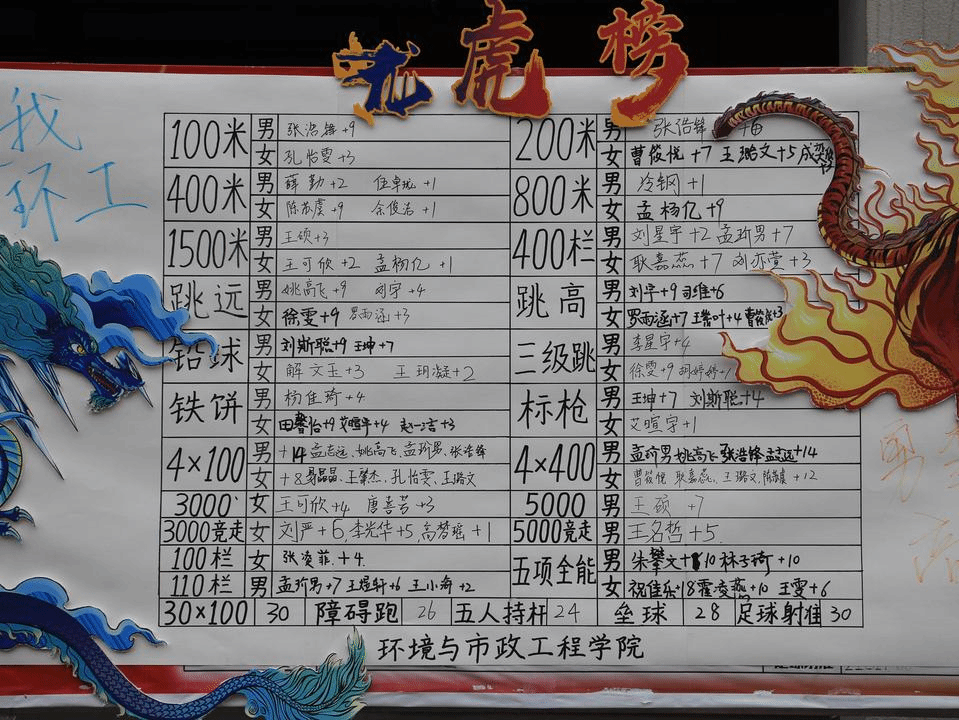 龙虎榜
我
环工
100米 男 张浩锋+9 200米 男 张浩锋
女 孔怡雯+3 女 曹筱悦+7 王璐文+5
400米 男 薛勤+2 +1 800米 男 冷钢+1
女 +9 余俊洁+1 女 孟杨亿+9
1500米 男 王硕+3 400栏 男 刘星宇+2 孟祈男+7
女 王可欣+2 孟杨亿+1 女 耿嘉蕊+7 刘亦萱+3
跳远 男 姚高飞+9 刘宇+4 跳高 男 刘宇+9 司维+6
女 徐雯+9 罗雨涵+3 女 罗雨涵+7 +4 +3
铅球 男 刘斯聪+9 王坤+7 三级跳 男 李星宇+4
女 解文玉+3 王玥凝+2 女 徐雯+9 胡婷婷+1
铁饼 男 杨佳琦+4 标枪 男 王坤+7 刘斯聪+4
女 田馨怡+9 +4 赵一洁+3 女 艾暄宇+1
4×100 男 +14 孟志远、姚高飞、孟祈男、张浩锋 4×400 男 孟祈男 姚高飞 张浩锋 孟志远+14
女 +8 聂晶晶、王肇杰、孔怡雯、王璐文 女 曹筱悦 耿嘉蕊、王璐文、 +12
3000 女 王可欣+4 唐喜芸+3 5000 男 王硕 +7
3000竞走 女 刘严+6,李光华+5,高梦瑶+1 5000竞走 男 王名哲+5.
100栏 女 张凌菲.+4. 五项全能 男 朱攀文+10 林子琦+10
110栏 男 孟祈男+7 王煜轩+6 王小奇+2 女 祝佳乐+8 霍凌燕+10 王雯+6
30×100 30 障碍跑 26 五人持杆 24 垒球 28 足球射准 30
环境与市政工程学院